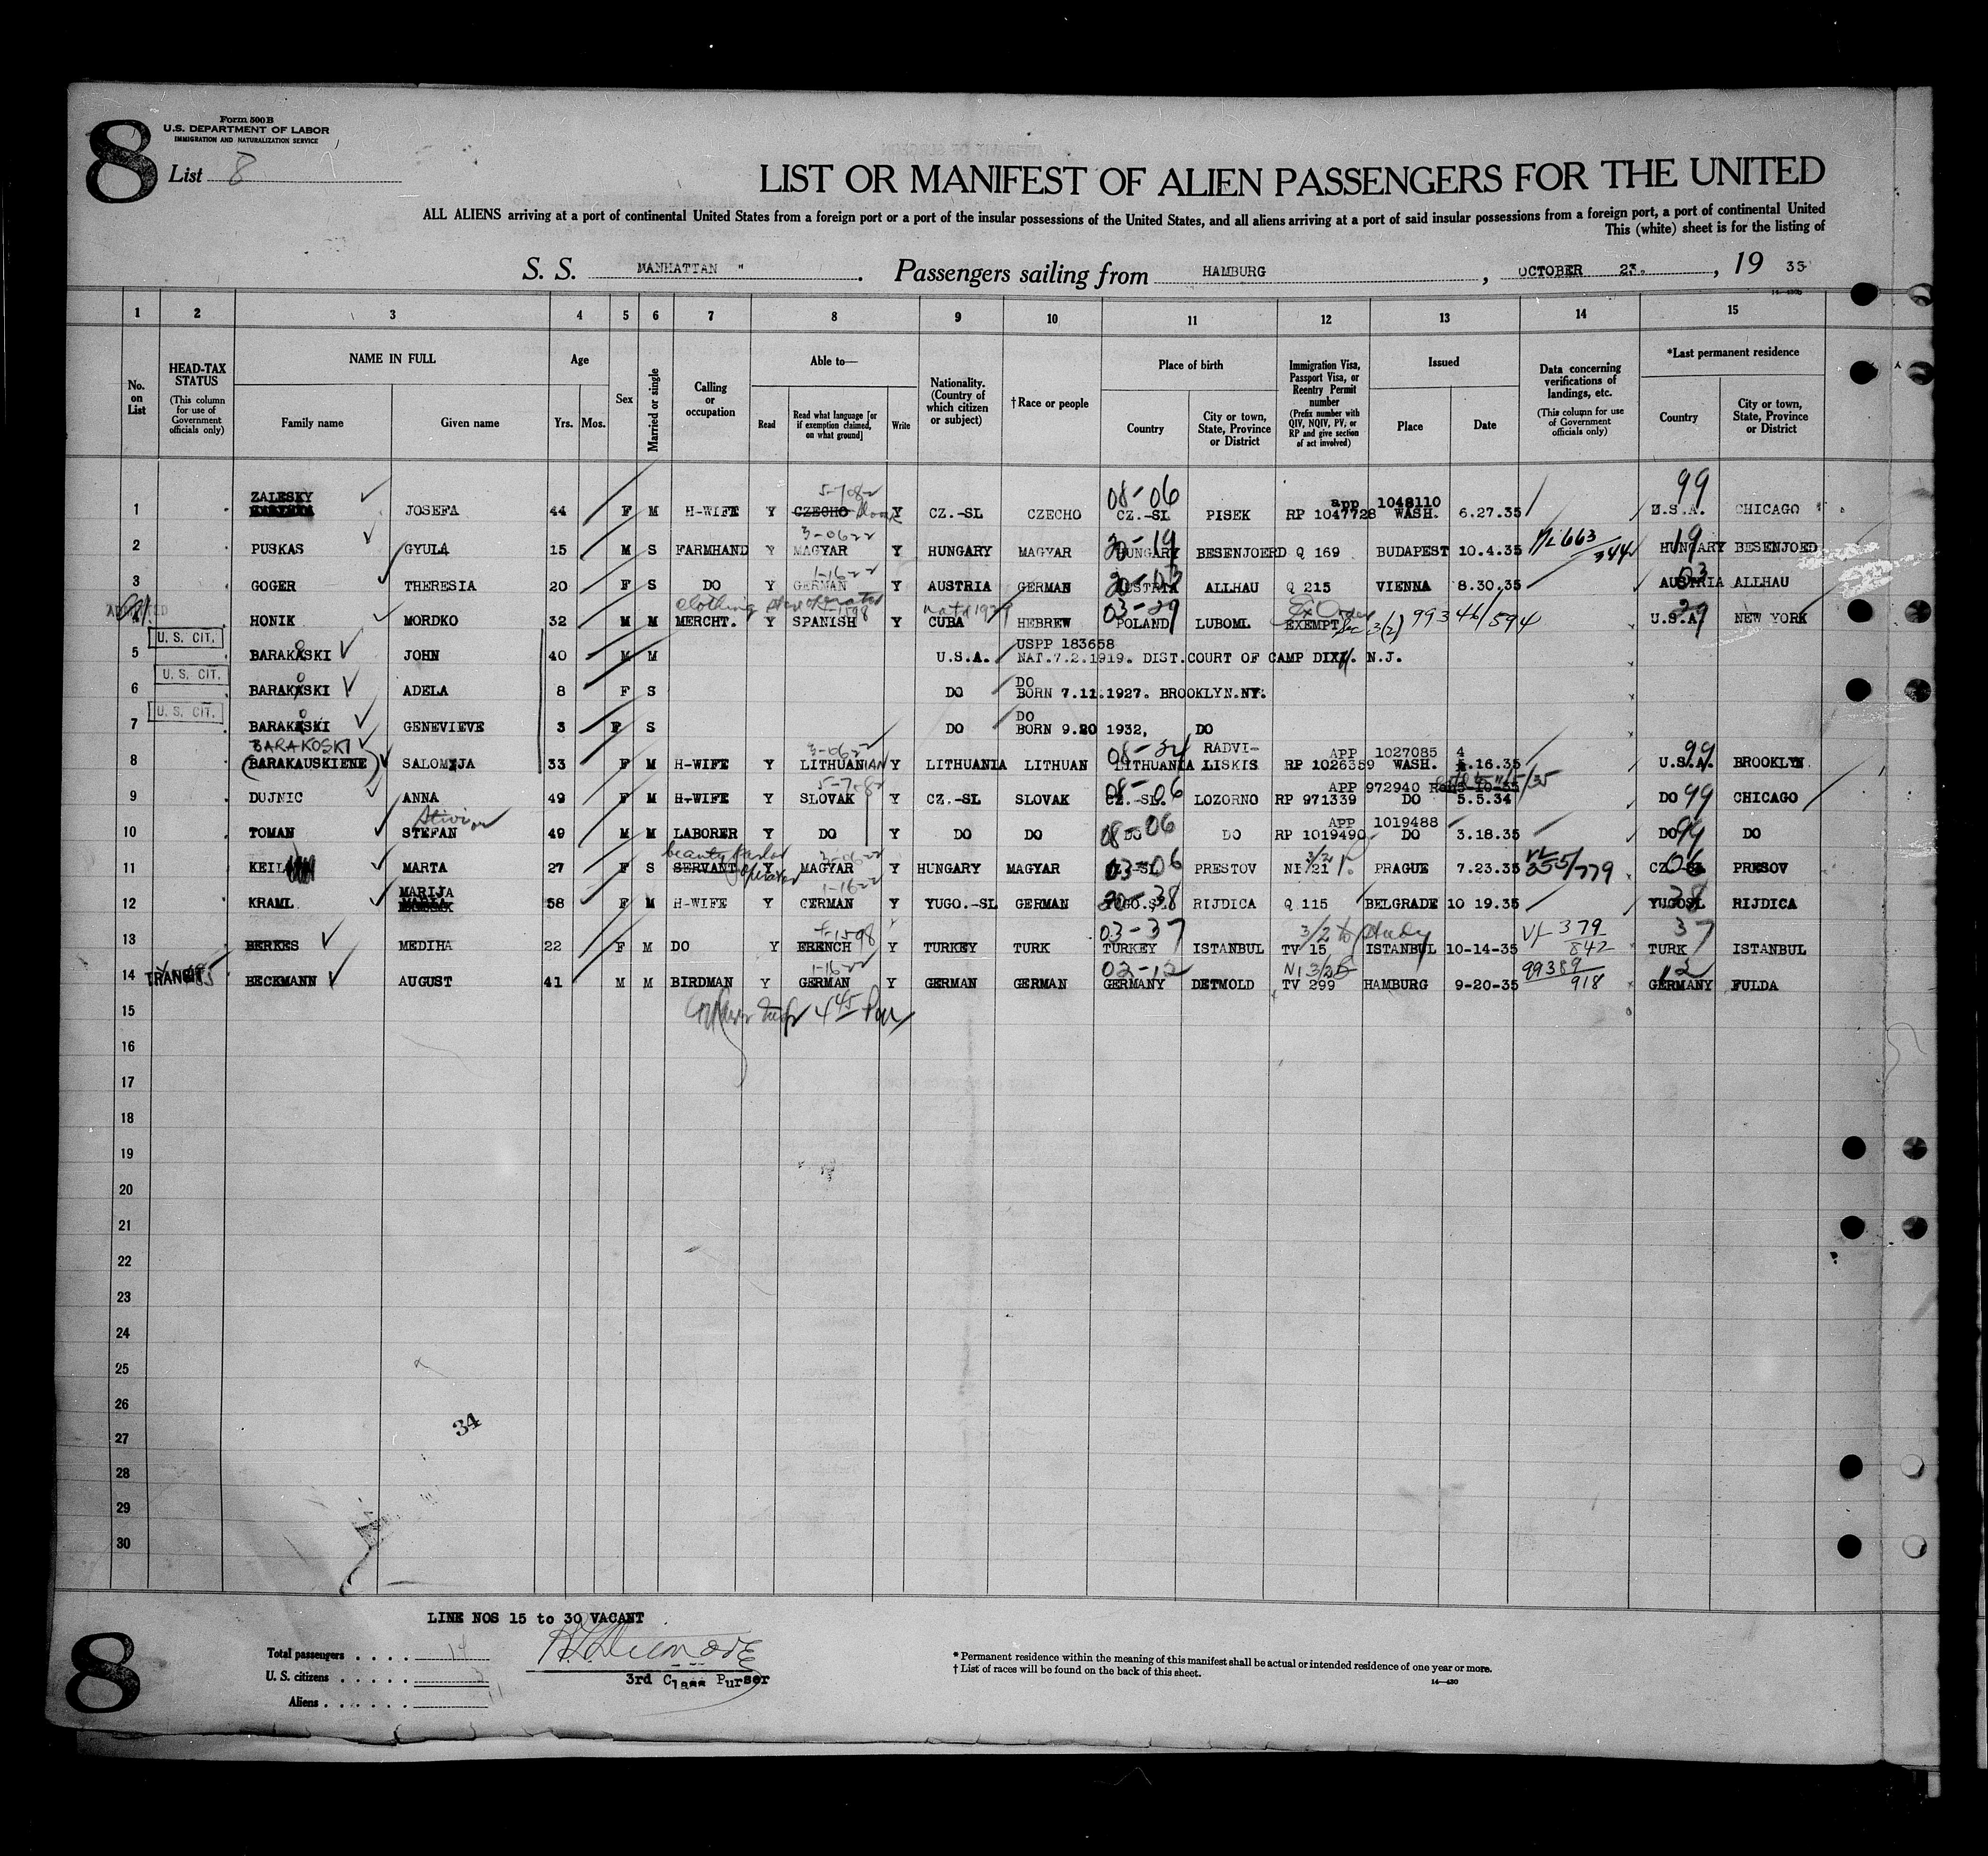 8
Form 500 B
U.S. DEPARTMENT OF LABOR
IMMIGRATION AND NATURALIZATION SERVICE
List 8
LIST OR MANIFEST OF ALIEN PASSENGERS FOR THE UNITED
ALL ALIENS arriving at a port of continental United States from a foreign port or a port of the insular possessions of the United States, and all aliens arriving at a port of said insular possessions from a foreign port, a port of continental United
This (white) sheet is for the listing of
S. S. MANHATTAN " . Passengers sailing from HAMBURG , OCTOBER 23. , 19 35
1 2 3 4 5 6 7 8 9 10 11 12 13 14 15
No. on List
HEAD-TAX STATUS (This column for use of Government officials only)
NAME IN FULL Family name Given name
Age Yrs. Mos.
Sex
Married or single
Calling or occupation
Able to— Read Read what language [or if exemption claimed, on what ground] Write
Nationality. (Country of which citizen or subject)
†Race or people
Place of birth Country City or town, State, Province or District
Immigration Visa, Passport Visa, or Reentry Permit number (Prefix number with QIV, NQIV, PV, or RP and give section of act involved)
Issued Place Date
Data concerning verifications of landings, etc. (This column for use of Government officials only)
*Last permanent residence Country City or town, State, Province or District
5-708 08-06 app 1048110 99
1 ZALESKY JOSEFA 44 F M H-WIFE Y CZECHO Y CZ.-SL CZECHO CZ.-SL PISEK RP 1047728 WASH. 6.27.35 U.S.A. CHICAGO
3-0622
2 PUSKAS GYULA 15 M S FARMHAND Y MAGYAR Y HUNGARY MAGYAR HUNGARY BESENJOERD Q 169 BUDAPEST 10.4.35 663/344 HUNGARY BESENJOED
1-1622
3 GOGER THERESIA 20 F S DO Y GERMAN Y AUSTRIA GERMAN AUSTRIA ALLHAU Q 215 VIENNA 8.30.35 AUSTRIA ALLHAU
clothing store operator 1598 03-29 Ex Order
4 HONIK MORDKO 32 M M MERCHT. Y SPANISH Y CUBA HEBREW POLAND LUBOML EXEMPT Sec 3(2) 99346/594 U.S.A. NEW YORK
U. S. CIT. USPP 183658
5 BARAKASKI JOHN 40 M M U.S.A. NAT.7.2.1919. DIST.COURT OF CAMP DIX. N.J.
U. S. CIT. DO
6 BARAKASKI ADELA 8 F S DO BORN 7.11.1927. BROOKLYN.NY.
U. S. CIT. DO
7 BARAKASKI GENEVIEVE 3 F S DO BORN 9.20 1932, DO
BARAKOSKI 3-0622 RADVI- APP 1027085 4 99
8 (BARAKAUSKIENE) SALOMIJA 33 F M H-WIFE Y LITHUANIAN Y LITHUANIA LITHUAN LITHUANIA LISKIS RP 1026359 WASH. 5.16.35 U.S.A. BROOKLYN
08-06 APP 972940
9 DUJNIC ANNA 49 F M H-WIFE Y SLOVAK Y CZ.-SL SLOVAK CZ.-SL. LOZORNO RP 971339 DO 5.5.34 DO 99 CHICAGO
APP 1019488
10 TOMAN STEFAN 49 M M LABORER Y DO Y DO DO DO 08-06 DO RP 1019490 DO 3.18.35 DO 99 DO
beauty parlor operator 3/2
11 KEIL MARTA 27 F S SERVANT Y MAGYAR Y HUNGARY MAGYAR CZ.-SL PRESTOV NI 21 PRAGUE 7.23.35 355/779 CZ.-SL PRESOV
MARIJA 1-1622
12 KRAML MARIA 58 F M H-WIFE Y GERMAN Y YUGO.-SL GERMAN YUGO.SL RIJDICA Q 115 BELGRADE 10 19.35 YUGOSL RIJDICA
1598 03-37 3/2 to study 379/842 37
13 BERKES MEDIHA 22 F M DO Y FRENCH Y TURKEY TURK TURKEY ISTANBUL TV 15 ISTANBUL 10-14-35 TURK ISTANBUL
1-1622 02-12 99389/918 12
14 TRANSIT BECKMANN AUGUST 41 M M BIRDMAN Y GERMAN Y GERMAN GERMAN GERMANY DETMOLD TV 299 HAMBURG 9-20-35 GERMANY FULDA
15
16
17
18
19
20
21
22
23
24
25
26
34
27
28
29
30
LINE NOS 15 to 30 VACANT
8
Total passengers . . . . 14
U. S. citizens . . . . . 3
Aliens . . . . . . . 11
3rd Class Purser
* Permanent residence within the meaning of this manifest shall be actual or intended residence of one year or more.
† List of races will be found on the back of this sheet.
14—430